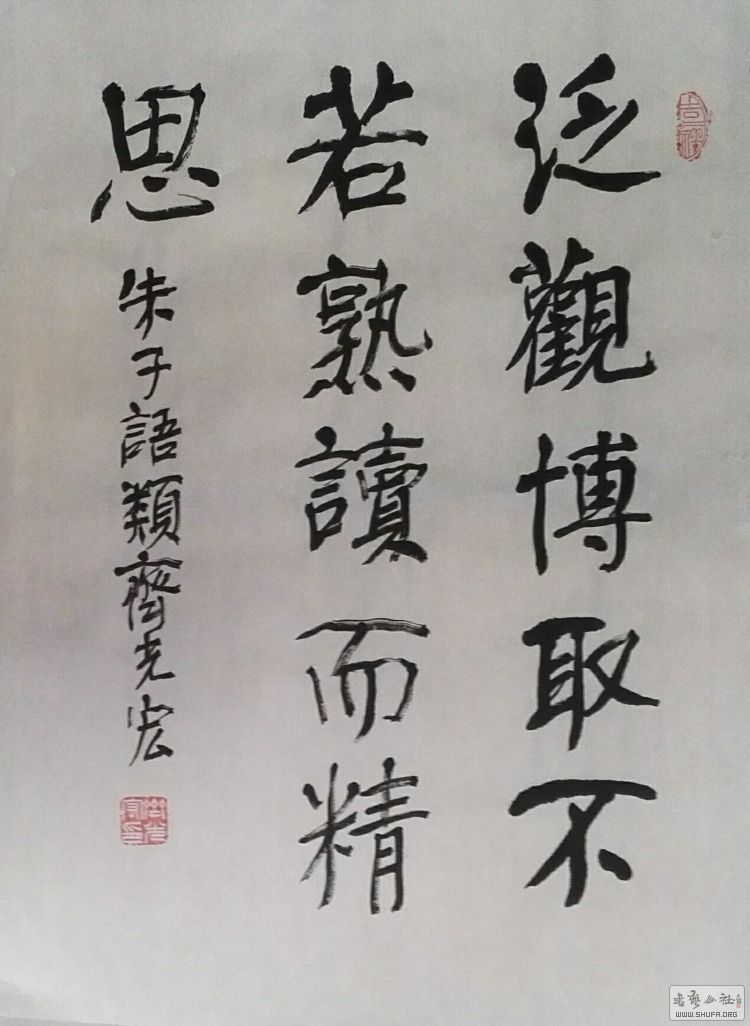 泛觀博取不
若熟讀而精
思
朱子語類齊光宏
WWW.SHUFA.ORG